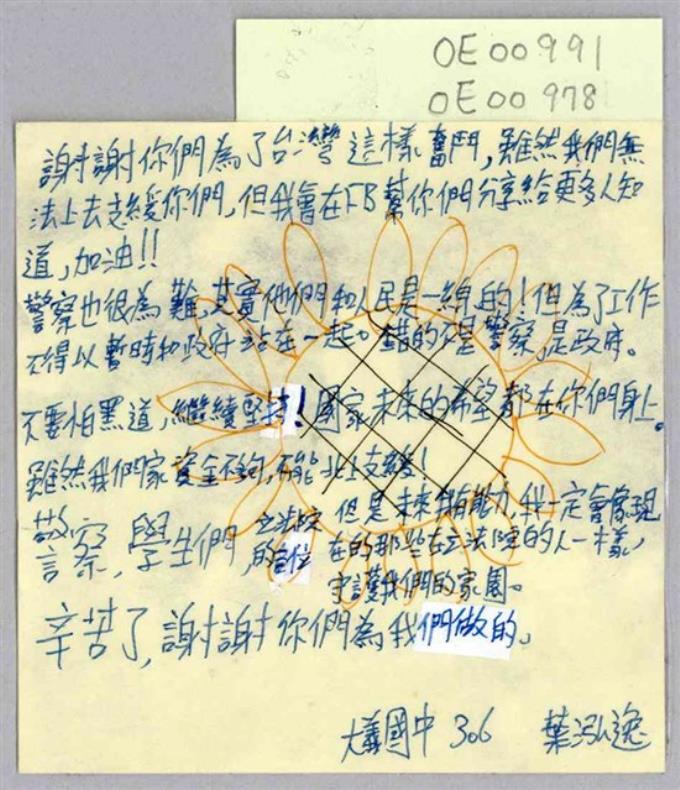 OE00991
OE00978
謝謝你們為了台灣這樣奮鬥,雖然我們無
法上去支緩你們,但我會在FB幫你們分享給更多人知
道,加油!!
警察也很為難,其實他們和人民是一線的!但為了工作
不得以暫時和政府站在一起。錯的不是警察,是政府。
不要怕黑道,繼續堅持!國家未來的希望都在你們身上。
雖然我們家資金不夠,不能北上支緩!
但是未來我有能力,我一定會像現
在的那些在立法院的人一樣,
守護我們的家園。
警察,學生們,立法院
的各位
辛苦了,謝謝你們為我們做的。
大義國中 306 葉泓逸